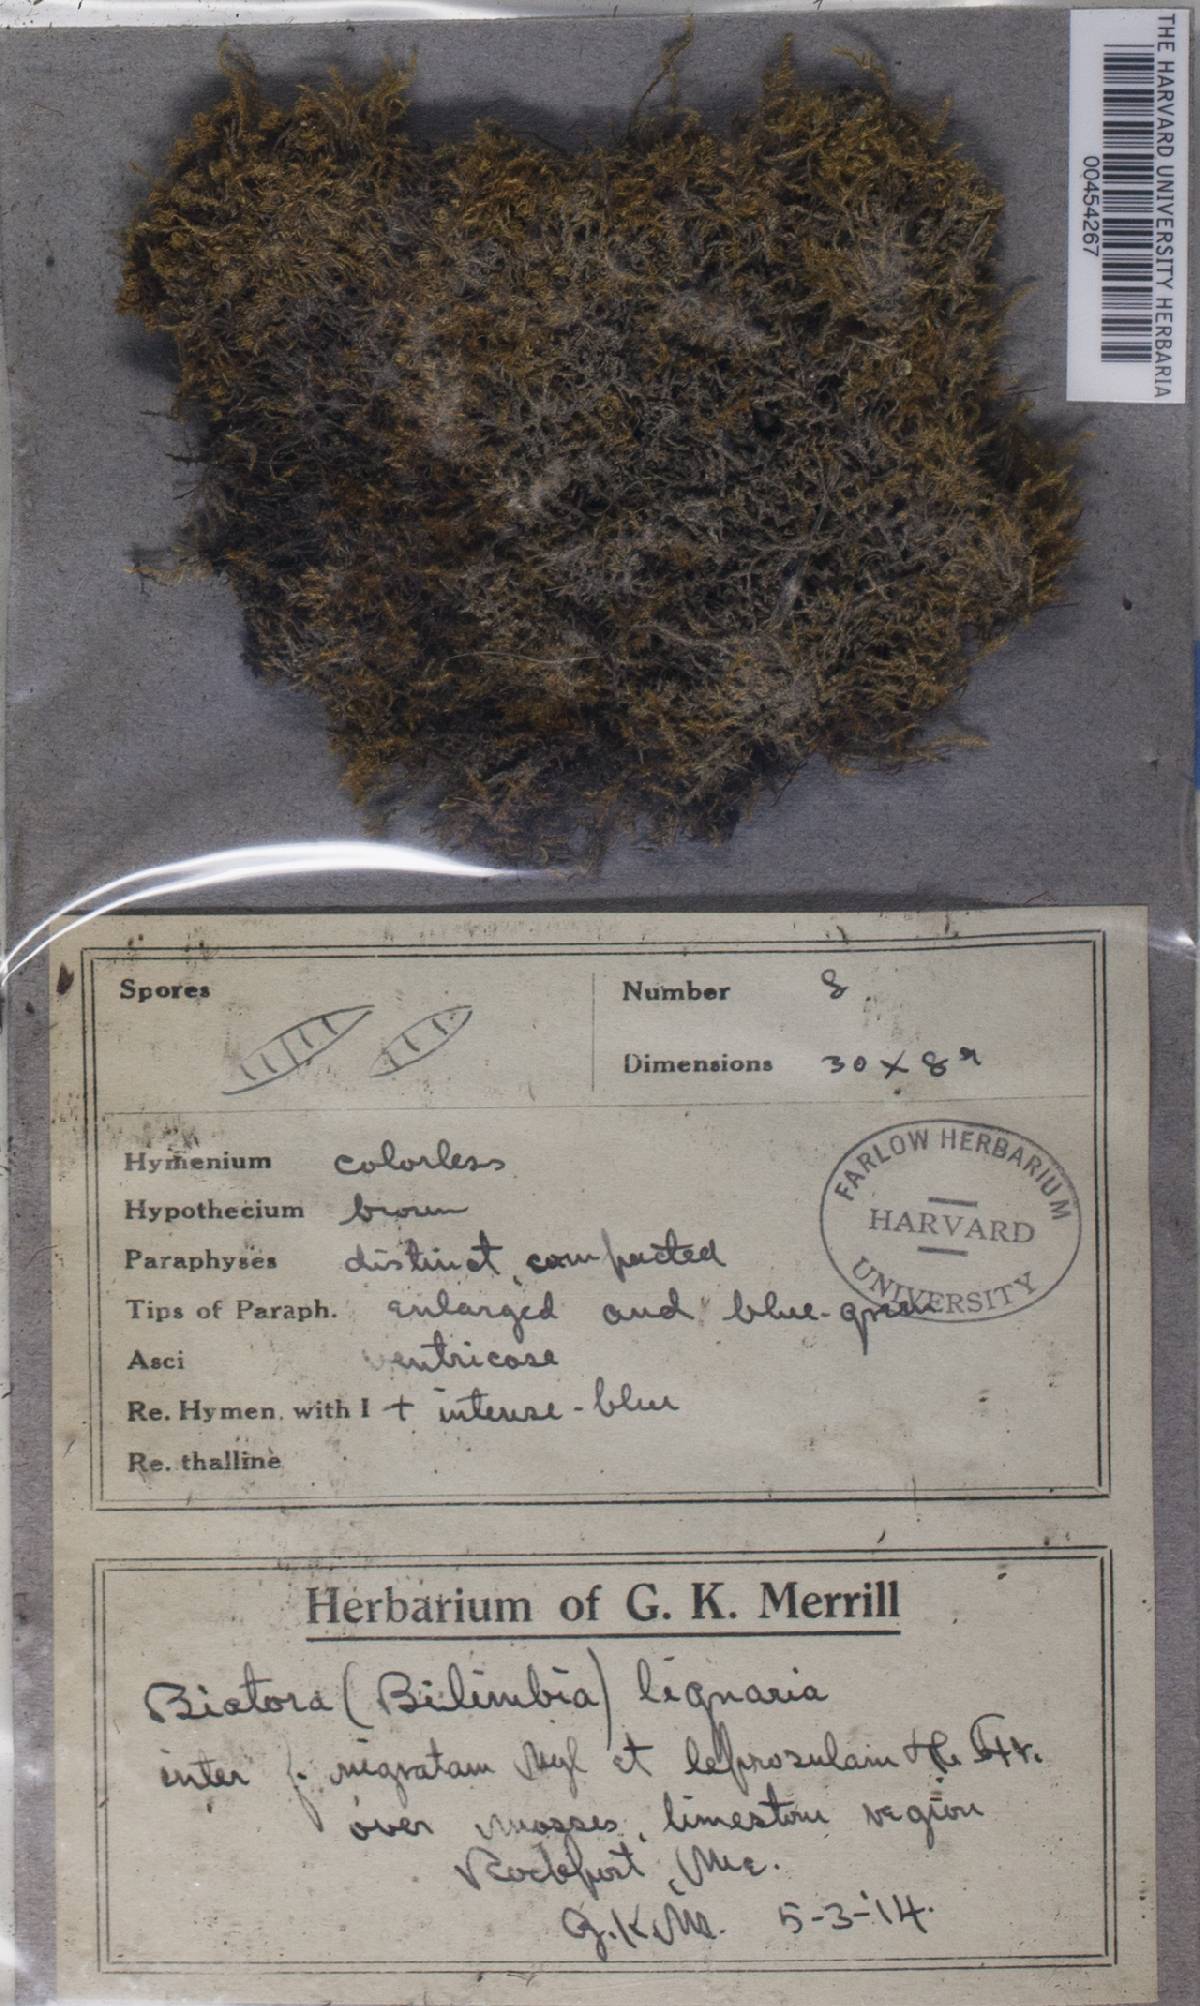 THE HARVARD UNIVERSITY HERBARIA
00454267
Spores
Number 8
Dimensions 30 x 8 μ
Hymenium colorless
Hypothecium brown
Paraphyses distinct, compacted
Tips of Paraph. enlarged and blue-green
Asci ventricose
Re. Hymen. with I + intense-blue
Re. thalline
FARLOW HERBARIUM
HARVARD
UNIVERSITY
Herbarium of G. K. Merrill
Biatora (Bilimbia) lignaria
inter f. nigratam Nyl et leprosulam Th. Fr.
over mosses, limestone region
Rockport, Me.
G.K.M. 5-3-'14.